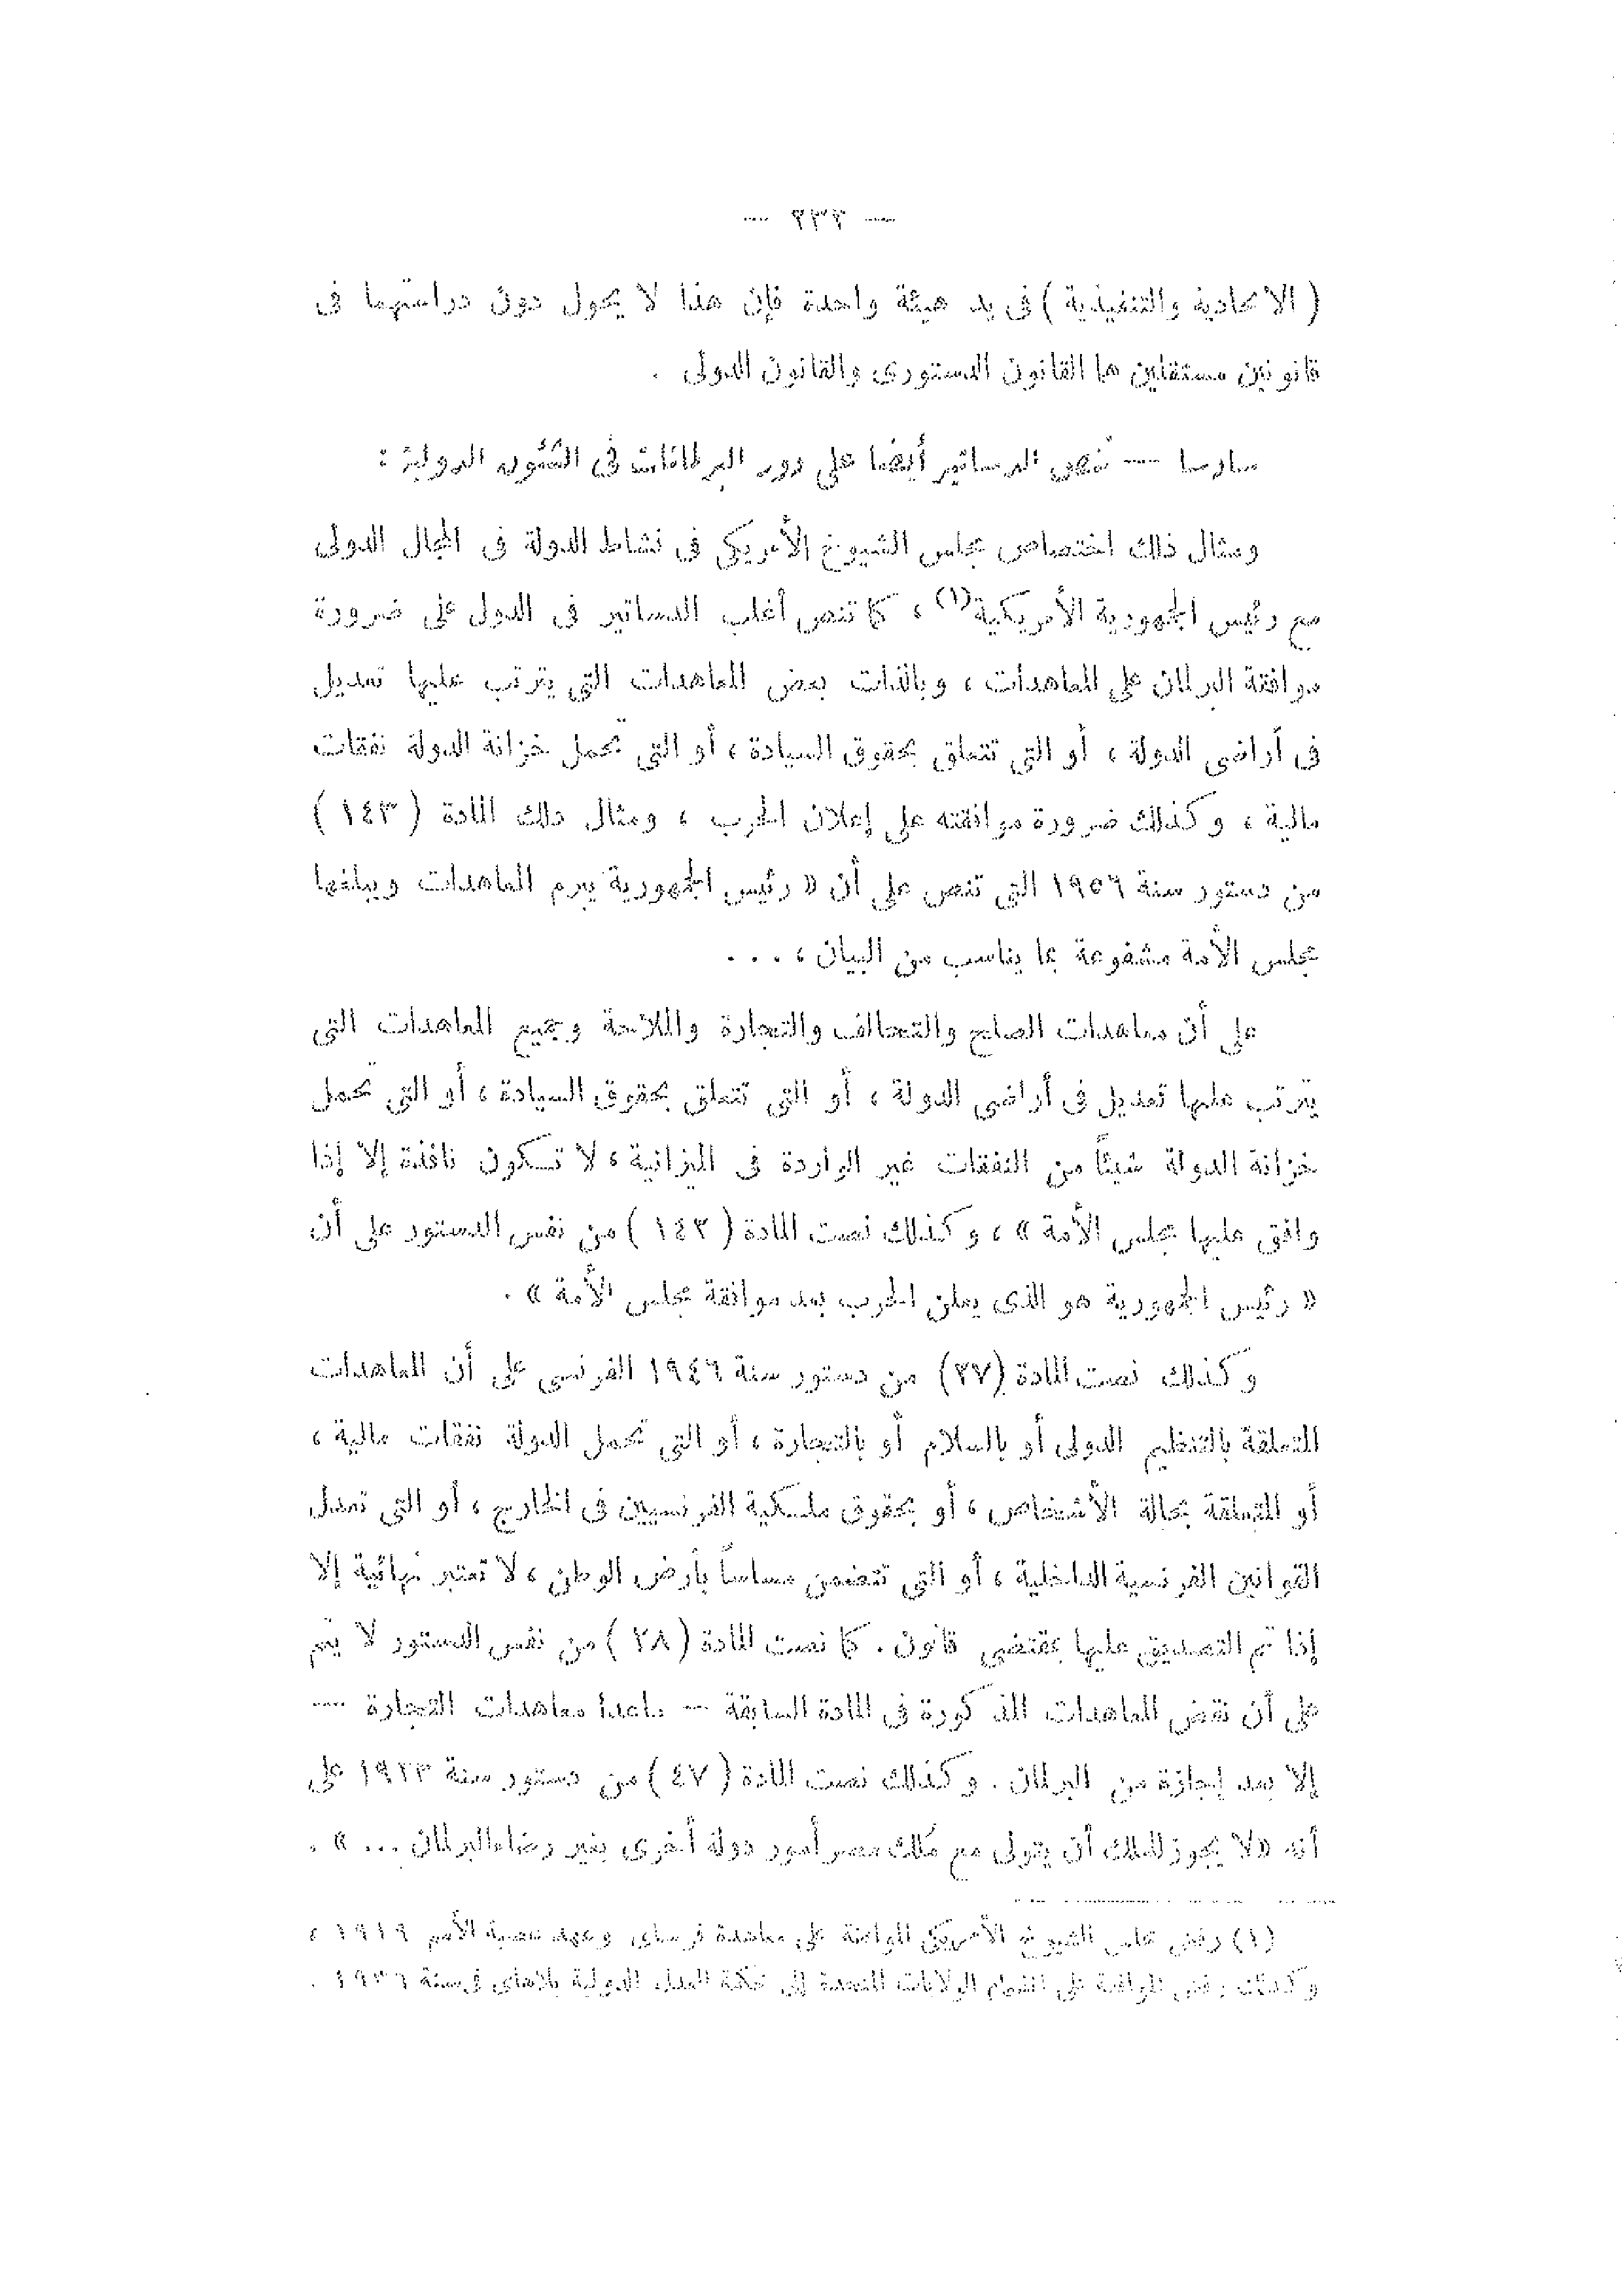 — ٢٣٢ —
( الاتحادية والتنفيذية ) فى يد هيئة واحدة فإن هذا لا يحول دون دراستهما فى
قانونين مستقلين هما القانون الدستورى والقانون الدولى .
سادسا — تنص الدساتير أيضا على دور البرلمانات فى الشئون الدولية :
ومثال ذلك اختصاص مجلس الشيوخ الأمريكى فى نشاط الدولة فى المجال الدولى
مع رئيس الجمهورية الأمريكية(١) ، كما تنص أغلب الدساتير فى الدول على ضرورة
موافقة البرلمان على المعاهدات ، وبالذات بعض المعاهدات التى يترتب عليها تعديل
فى أراضى الدولة ، أو التى تتعلق بحقوق السيادة ، أو التى تحمل خزانة الدولة نفقات
مالية ، وكذلك ضرورة موافقته على إعلان الحرب ، ومثال ذلك المادة ( ١٤٣ )
من دستور سنة ١٩٥٦ التى تنص على أن « رئيس الجمهورية يبرم المعاهدات ويبلغها
مجلس الأمة مشفوعة بما يناسب من البيان ، . . .
على أن معاهدات الصلح والتحالف والتجارة والملاحة وجميع المعاهدات التى
يترتب عليها تعديل فى أراضى الدولة ، أو التى تتعلق بحقوق السيادة ، أو التى تحمل
خزانة الدولة شيئاً من النفقات غير الواردة فى الميزانية ، لا تكون نافذة إلا إذا
وافق عليها مجلس الأمة » ، وكذلك نصت المادة ( ١٤٢ ) من نفس الدستور على أن
« رئيس الجمهورية هو الذى يعلن الحرب بعد موافقة مجلس الأمة » .
وكذلك نصت المادة (٢٧) من دستور سنة ١٩٤٦ الفرنسى على أن المعاهدات
المتعلقة بالتنظيم الدولى أو بالسلام أو بالتجارة ، أو التى تحمل الدولة نفقات مالية ،
أو المتعلقة بحالة الأشخاص ، أو بحقوق ملكية الفرنسيين فى الخارج ، أو التى تعدل
القوانين الفرنسية الداخلية ، أو التى تتضمن مساساً بأرض الوطن ، لا تعتبر نهائية إلا
إذا تم التصديق عليها بمقتضى قانون . كما نصت المادة ( ٢٨ ) من نفس الدستور لا يتم
على أن نقض المعاهدات المذكورة فى المادة السابقة — ماعدا معاهدات التجارة —
إلا بعد إجازة من البرلمان . وكذلك نصت المادة ( ٤٧ ) من دستور سنة ١٩٢٣ على
أنه «لا يجوز للملك أن يتولى مع مُلك مصر أمور دولة أخرى بغير رضاء البرلمان ... » .
(١) رفض مجلس الشيوخ الأمريكى الموافقة على معاهدة فرساى وعهد عصبة الأمم ١٩١٩ ،
وكذلك رفض الموافقة على انضمام الولايات المتحدة إلى محكمة العدل الدولية بلاهاى فى سنة ١٩٣٦ .